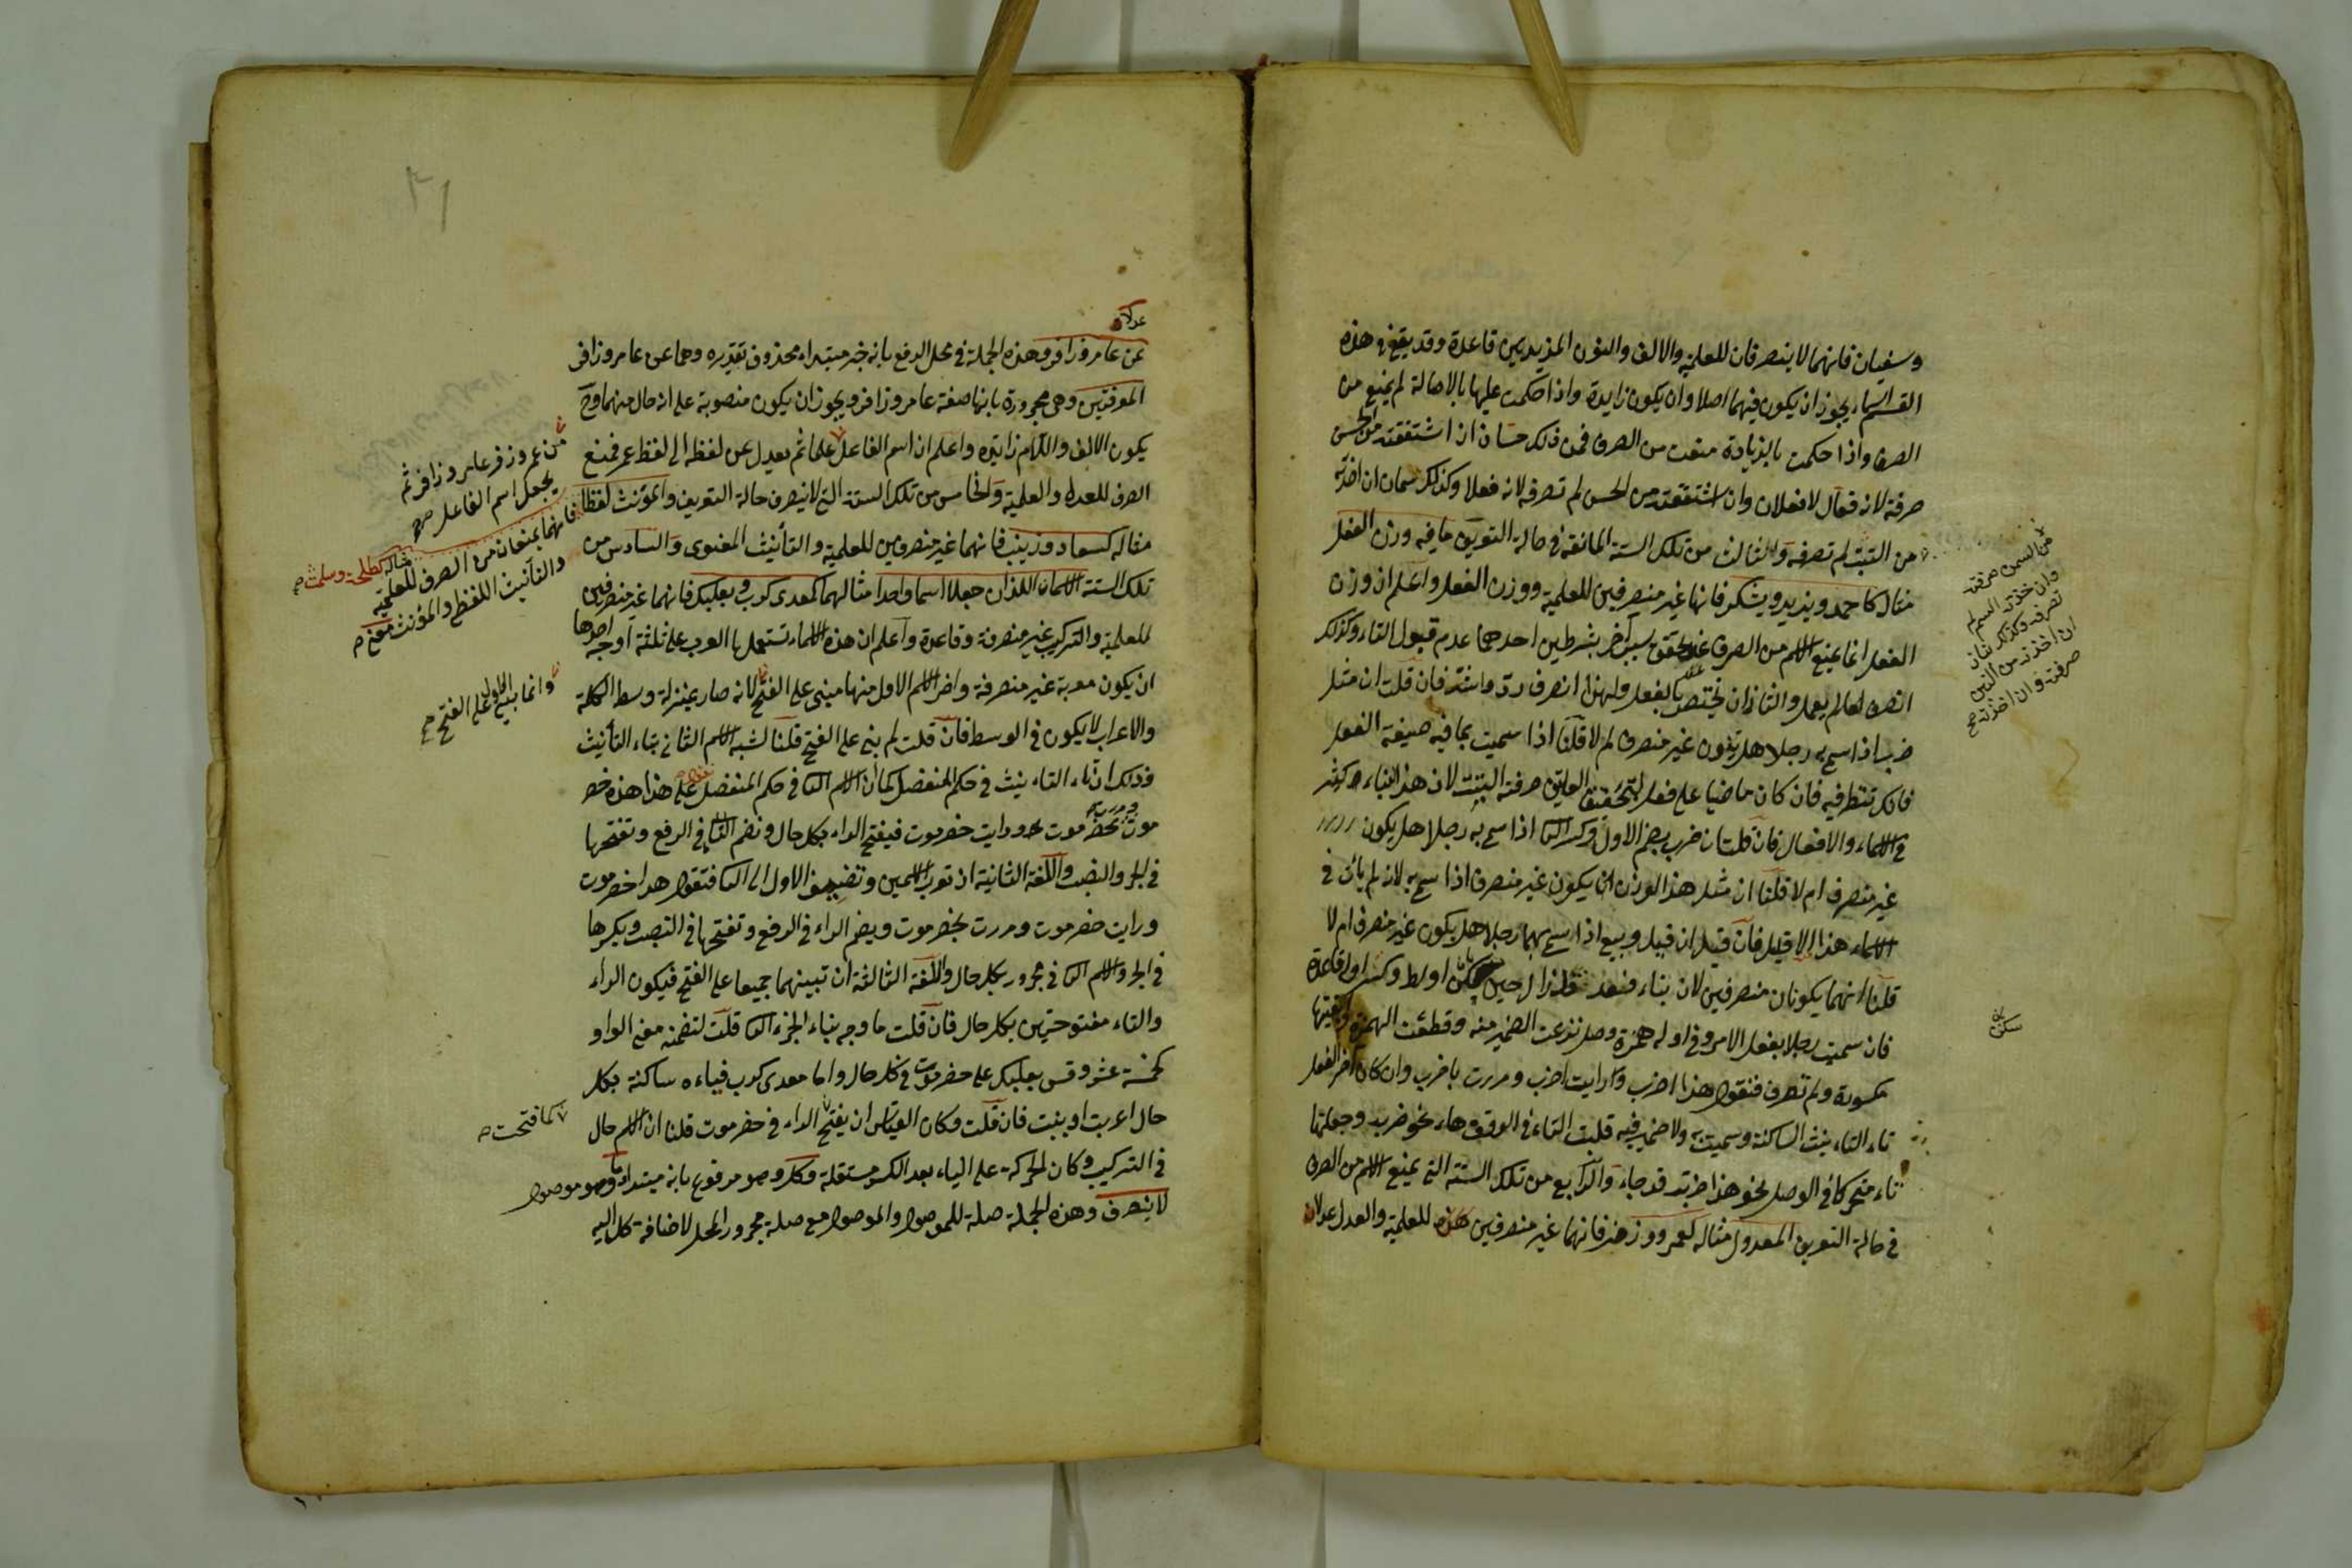 وسفيان فانهما لا ينصرفان للعلمية والالف والنون المزيدتين قاعدة وقد يقع في هذه
القسم اسماء يجوز ان يكون فيهما اصلا وان يكون زايدة واذا حكمت عليها بالاصالة لم يمنع من
الصرف واذا حكمت بالزيادة منعت من الصرف فمن ذلك حسان ان اشتققته من الحسن
صرفته لانه فعال لا فعلان وان اشتققته من الحس لم تصرفه لانه فعلا وكذلك سمان ان اخذته
من السمن صرفته
وان اخذته السم لم
تصرفه وكذلك
ان اخذته من التبن
صرفته وان اخذته صح
من التبت لم تصرفه والثالث من تلك الستة المانعة في حالة التعريف ما فيه وزن الفعل
مثاله كاحمد ويزيد ويشكر فانها غير منصرفين للعلمية ووزن الفعل واعلم ان وزن
الفعل انما يمنع الاسم من الصرف بشرطين احدهما عدم قبول التاء وكذلك
انصرف يعمل والثاني ان يختص بالفعل ولهذا انصرف فان قلت ان مثل
ضرب اذا سمي به رجلا هل يكون غير منصرف ام لا قلنا اذا سميت بما فيه صيغة الفعل
فانك تنظر فيه فان كان ماضيا على فعل صرفته البتة لان هذا البناء كثير
في الاسماء والافعال فان قلت ان ضرب بضم الاول وكسر الثا اذا سمي به رجلا هل يكون
غير منصرف ام لا قلنا ان مثل هذا الوزن يكون غير منصرف اذا سمي به لانه لم يأت في
الاسماء هذا الا قليل فان قيل ان قيل وبيع اذا سمي بهما رجلا هل يكون غير منصرف ام لا
قلنا انهما يكونان منصرفين لان بناء قد زال حين وكسر اوله قاعدة
سكن
فان سميت رجلا بفعل الامر وفي اوله همزة وصل نزعت الضمير منه وقطعت الهمزة
مكسورة ولم تصرف فتقول هذا اضرب ورايت اضرب ومررت باضرب وان كان اخر الفعل
تاء التاء نيث الساكنة وسميت به ولا ضمير فيه قلبت التاء في الوقف هاء نحو ضربه وجعلتها
تاء متحركا في الوصل نحو هذا ضربة قد جاء والرابع من تلك الستة التي يمنع الاسم من الصرف
في حالة التعريف المعدول مثاله كعمر وزفر فانهما غير منصرفين للعلمية والعدل عدلا
عدلا
عن عامر وزافر وهذه الجملة في محل الرفع بانه خبر مبتداء محذوف تقديره وهما عن عامر وزافر
المعرفتين وهي مجرورة بانها صفة عامر وزافر ويجوز ان يكون منصوبة على انه حال منهما وح
يكون الالف واللام زايدة واعلم ان اسم الفاعل علما ثم يعدل عن لفظه الى لفظ عمر فمنع
من عمر وزفر عامر وزافر ثم
يجعل اسم الفاعل صح
الصرف للعدل والعلمية والخامس من تلك الستة التي لا ينصرف حالة التعريف والمؤنث لفظا
مثاله كطلحة وسلمة
فانهما يمنعان من الصرف للعلمية
والتأنيث اللفظ والمؤنث معنى
مثاله كسعاد وزينب فانهما غير منصرفين للعلمية والتأنيث المعنوى والسادس من
تلك الستة الاسمان اللذان جعلا اسما واحدا مثالهما كمعدى كرب وبعلبك فانهما غير منصرفين
للعلمية والتركيب غير منصرفة وقاعدة واعلم ان هذه الاسماء تستعملها العرب على ثلثة اوجه احدها
ان يكون معربة غير منصرفة واخر الاسم الاول منها مبنى على الفتح لانه صار بمنزلة وسط الكلمة
وانما بنى الاول على الفتح صح
والاعراب لا يكون في الوسط فان قلت لم بني على الفتح قلنا لشبه الاسم الثاني بتاء التأنيث
وذلك ان تاء التاء نيث في حكم المنفصل كما ان الاسم الثا في حكم المنفصل على هذا هذه حضر
موت بحضر موت ورايت حضرموت فيفتح الراء بكل حال وتضم التا في الرفع وتفتحها
في الجر والنصب واللغة الثانية ان تعرب الاسمين وتضيف الاول الى الثا فتقول هذا حضرموت
ورايت حضرموت ومررت بحضرموت ويضم الراء في الرفع وتفتحها في النصب ويكسرها
في الجر والاسم الثا في مجرور بكل حال واللغة الثالثة ان تبنيهما جميعا على الفتح فيكون الراء
والتاء مفتوحتين بكل حال فان قلت ما وجه بناء الجزء الثا قلت لتضمنه معنى الواو
كخمسة عشر وقس بعلبك على حضرموت في كل حال واما معدى كرب فياءه ساكنة بكل
حال اعربت او بنيت فان قلت وكان القياس ان يفتح الراء في حضرموت قلنا ان الاسم حال
كما فتحت
في التركيب وكان الحركة على الياء بعد الكسر مستقلة وكل وهو مرفوع بانه مبتداء وما وهو موصول
لا ينصرف وهذه الجملة صلة للموصول والموصول مع صلة مجرور المحل لاضافة كل اليه